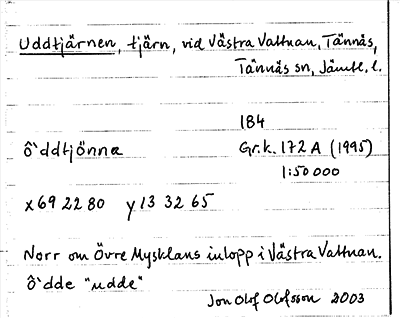 Uddtjärnen, tjärn, vid Västra Vattnan, Tännäs,
Tännäs sn, Jämtl. l.
184
ô`ddtjönnæ Gr.k. 172 A (1995)
1:50 000
x69 22 80 y13 32 65
Norr om Övre Mysklans inlopp i Västra Vattnan.
ô`dde "udde"
Jon Olof Olofsson 2003